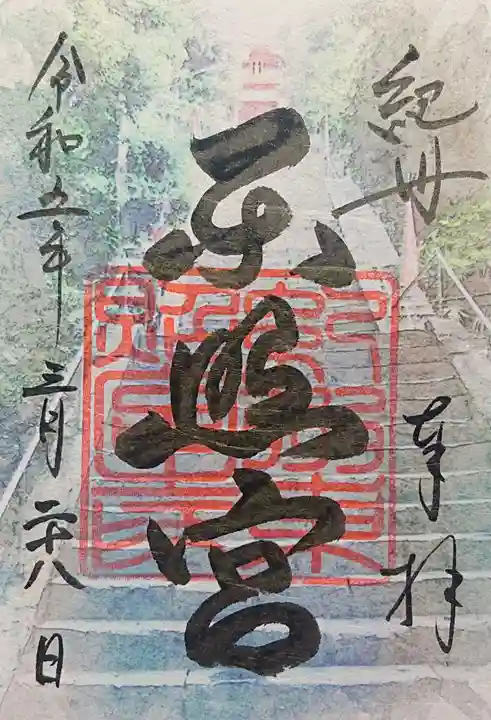 紀州
奉拝
東照宮
令和五年三月二十八日